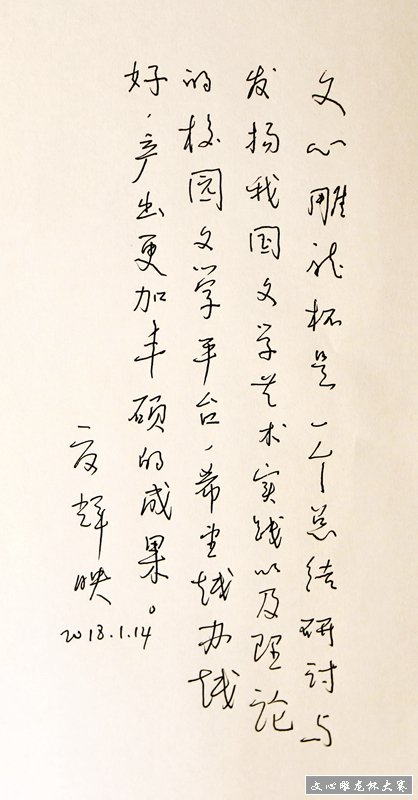 文心雕龙杯是一个总结研讨与
发扬我国文学艺术实践以及理论
的校园文学平台,希望越办越
好,产出更加丰硕的成果。
夜辉映
2018.1.14
文心雕龙杯大赛